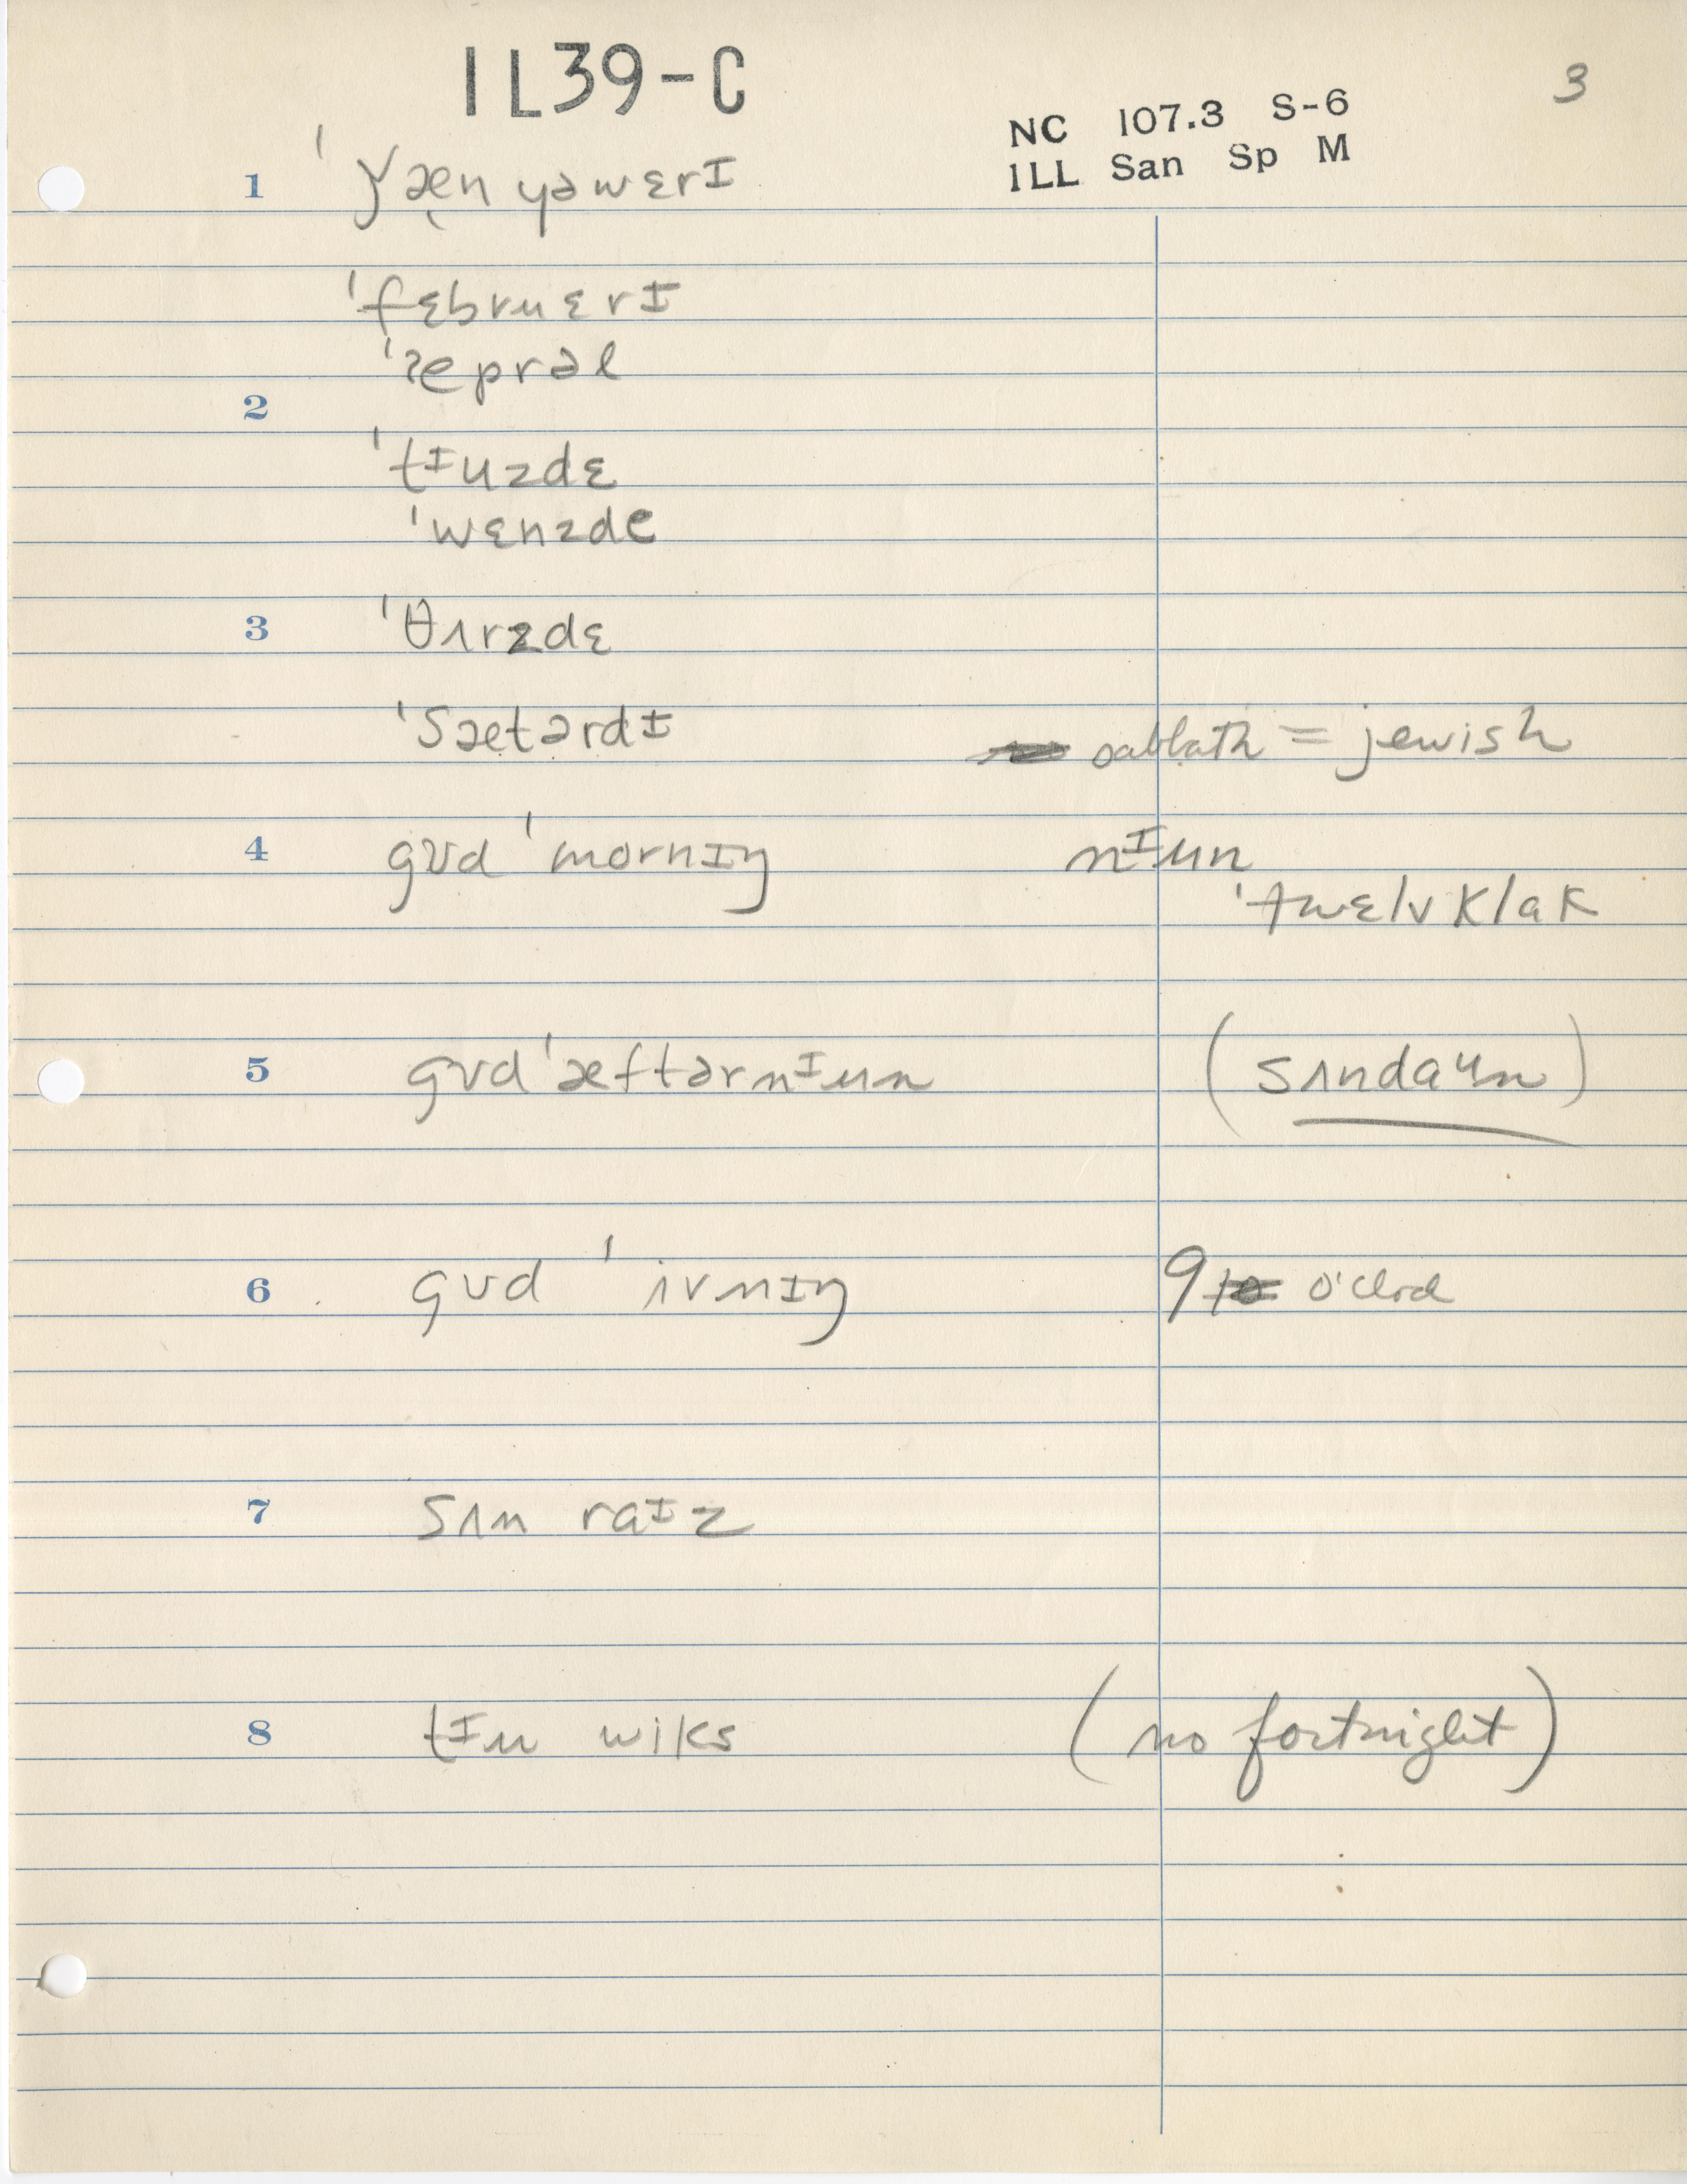 IL39-C
3
NC 107.3 S-6
ILL San Sp M
1 ˈǰæ̨nyəwɛrɪ
ˈfɛbruɛrɪ
ˈæprəl
2
ˈtᶦuzdɛ
ˈwɛnzde
3 ˈθʌrzdɛ
ˈsætərdɪ sabbath = jewish
4 gʊd ˈmornɪŋ nᶦun
ˈtwɛlv klak
5 gʊd ˈæftərnᶦun (sʌndaᵘn)
6 gʊd ˈivnɪŋ 9 o'clock
7 sʌn raᶦz
8 tᶦu wiks (no fortnight)